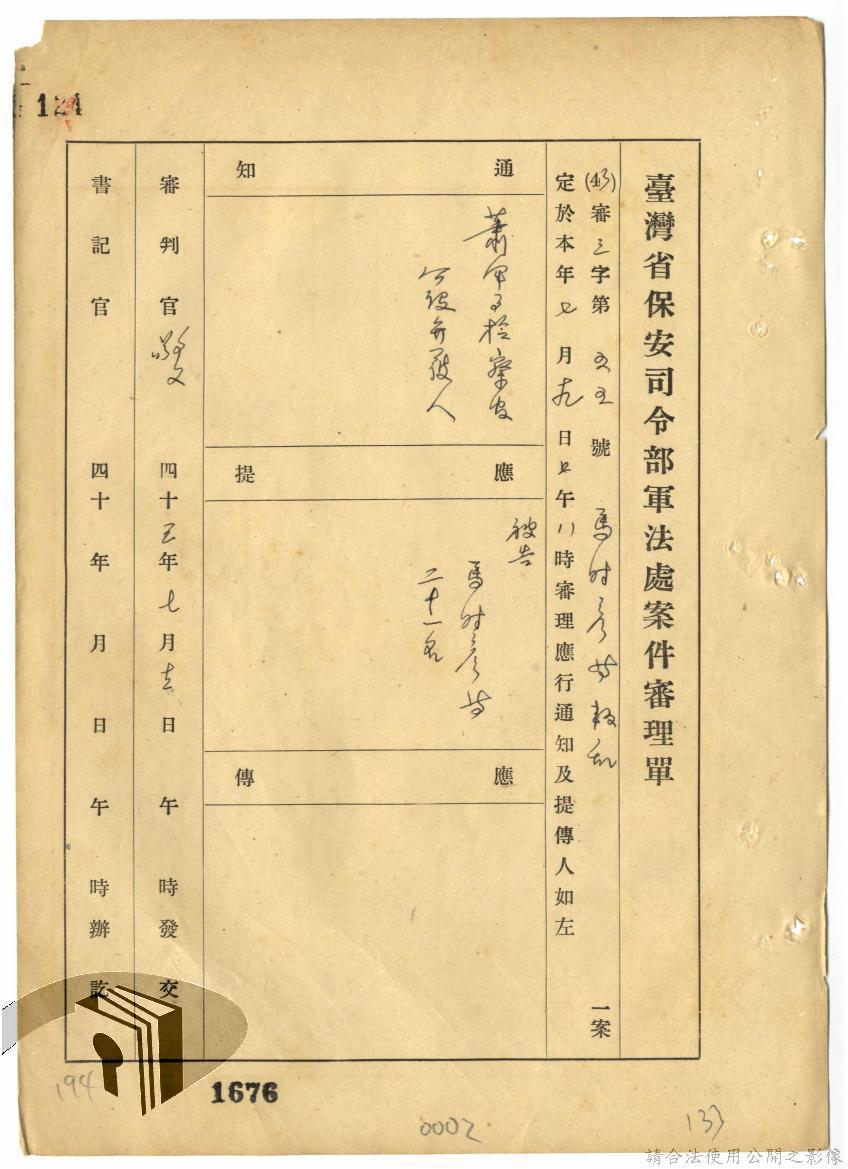 臺灣省保安司令部軍法處案件審理單
(45)審三字第五五號 馬時彥等叛亂 一案
定於本年七月十九日上午八時審理應行通知及提傳人如左
通知
蕭 檢察官
公設辯護人
應提
被告
馬時彥等
二十一名
應傳
審判官 四十五年七月 日 午 時發交
書記官 四十 年 月 日 午 時辦訖
1676
194
0002
133
請合法使用公開之影像